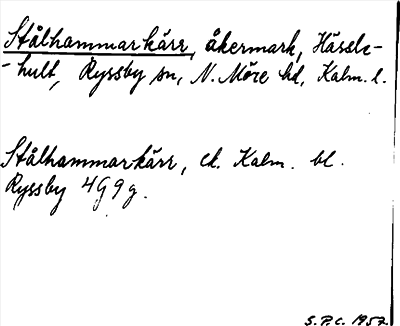 Stålhammarkärr, åkermark, Hässle-
-hult, Ryssby sn, N. Möre hd, Kalm. l.
Stålhammarkärr, ek. Kalm. bl.
Ryssby 4G9g.
S.P.C. 1957.